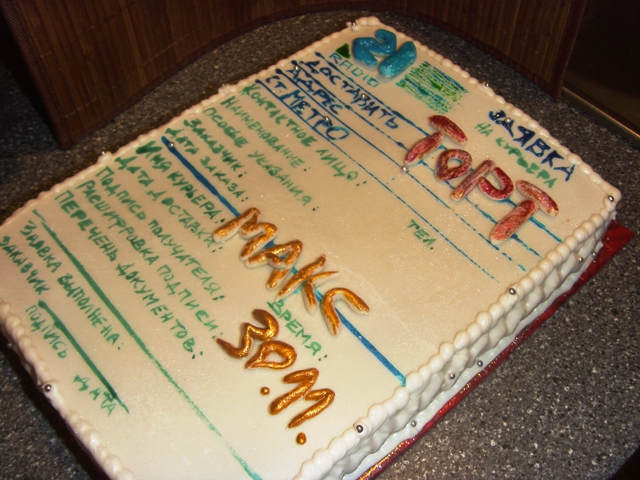 21
RADIO
ЗАЯВКА
НА КУРЬЕРА
ДОСТАВИТЬ
АДРЕС
СТ МЕТРО
ТОРТ
КОНТАКТНОЕ ЛИЦО:
ТЕЛ.
НАИМЕНОВАНИЕ:
ОСОБЫЕ УКАЗАНИЯ:
ЗАКАЗЧИК:
ДАТА ЗАКАЗА:
ИМЯ КУРЬЕРА:
МАКС
ДАТА ДОСТАВКИ:
ВРЕМЯ:
ПОДПИСЬ ПОЛУЧАТЕЛЯ:
ЗD.M.
РАСШИФРОВКА ПОДПИСИ:
ПЕРЕЧЕНЬ ДОКУМЕНТОВ:
ЗАЯВКА ВЫПОЛНЕНА:
ЗАКАЗЧИК
ПОДПИСЬ ДАТА